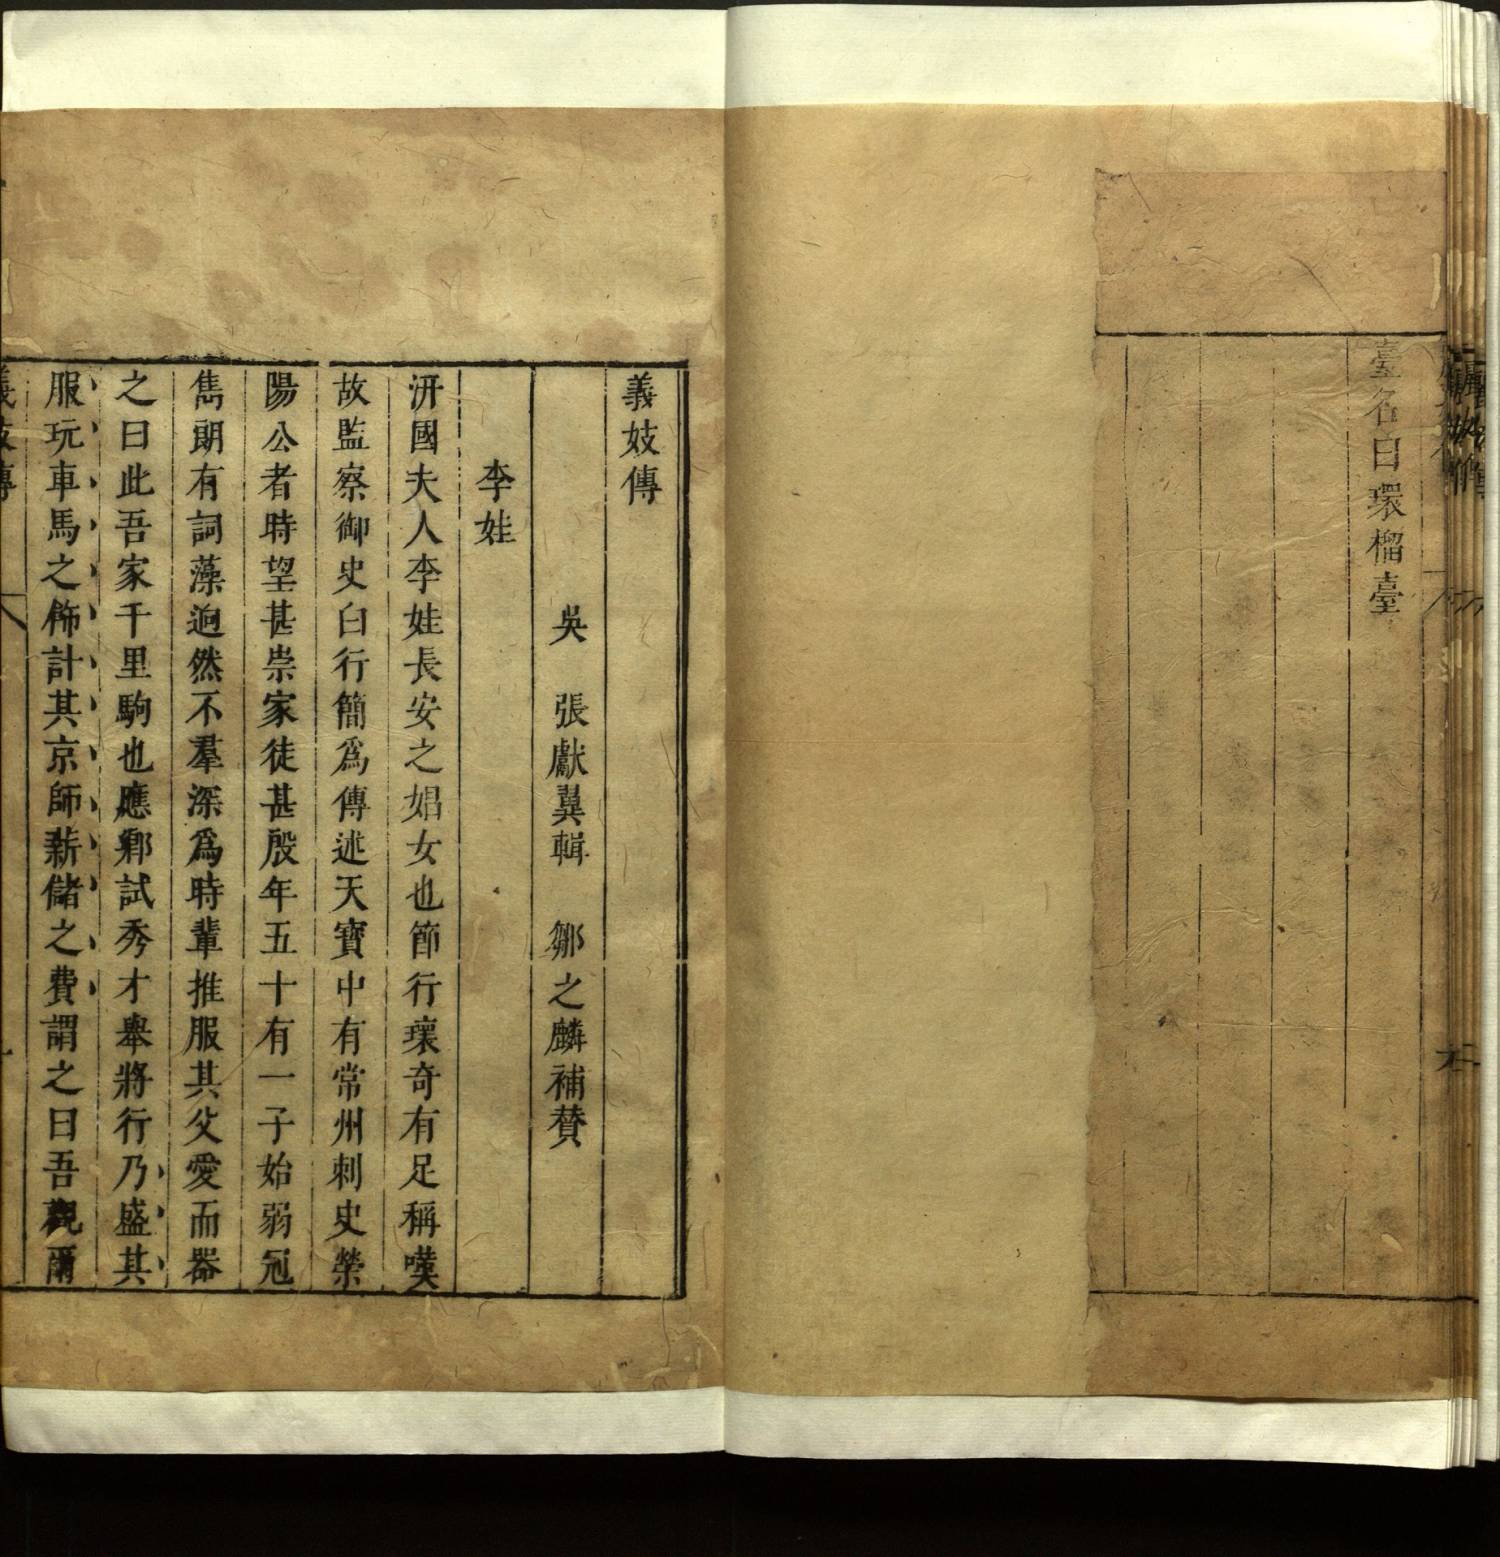 臺名曰環榴臺
義妓傳
吳 張獻翼輯 鄒之麟補贊
李娃
汧國夫人李娃長安之娼女也節行瓌奇有足稱嘆
故監察御史白行簡爲傳述天寶中有常州刺史榮
陽公者時望甚崇家徒甚殷年五十有一子始弱冠
雋朗有詞藻逈然不羣深爲時輩推服其父愛而器
之曰此吾家千里駒也應鄉試秀才舉將行乃盛其
服玩車馬之飾計其京師薪儲之費謂之曰吾觀爾
義妓傳